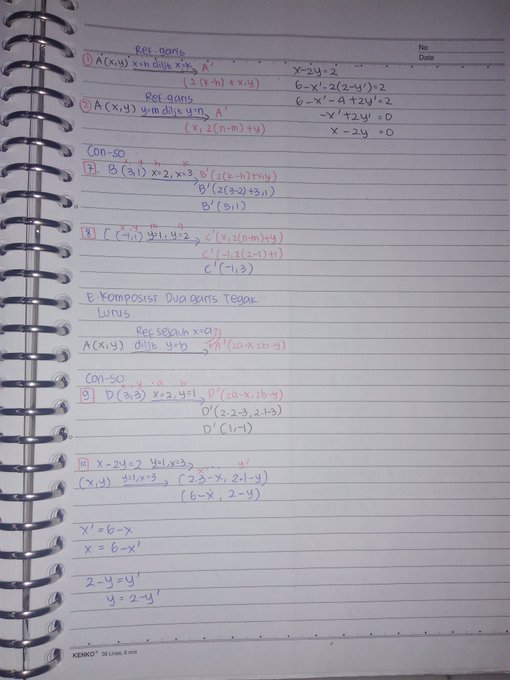 No
Date
Ref. garis
① A(x,y) x=h diljt x=k A'
(2(k-h)+x,y)
Ref. garis
② A(x,y) y=m diljt y=n A'
(x, 2(n-m)+y)
x-2y=2
6-x'-2(2-y')=2
6-x'-4+2y'=2
-x'+2y'=0
x-2y=0
Con-so
x, y h k
7. B(3,1) x=2, x=3 B'(2(k-h)+x,y)
B'(2(3-2)+3,1)
B'(5,1)
x, y m n
8 C(-1,1) y=1, y=2 C'(x,2(n-m)+y)
C'(-1,2(2-1)+1)
C'(-1,3)
E. Komposisi Dua garis Tegak
Lurus
Ref. sesuah x=a
A(x,y) diljt y=b A'(2a-x,2b-y)
Con-so
x, y a b
9. D(3,3) x=2, y=1 D'(2a-x,2b-y)
D'(2.2-3, 2.1-3)
D'(1,-1)
10 x-2y=2 y=1,x=3 ....
x' y'
(x,y) y=1,x=3 (2.3-x, 2.1-y)
(6-x, 2-y)
x'=6-x
x=6-x'
2-y=y'
y=2-y'
KENKO® 36 Lines, 6 mm